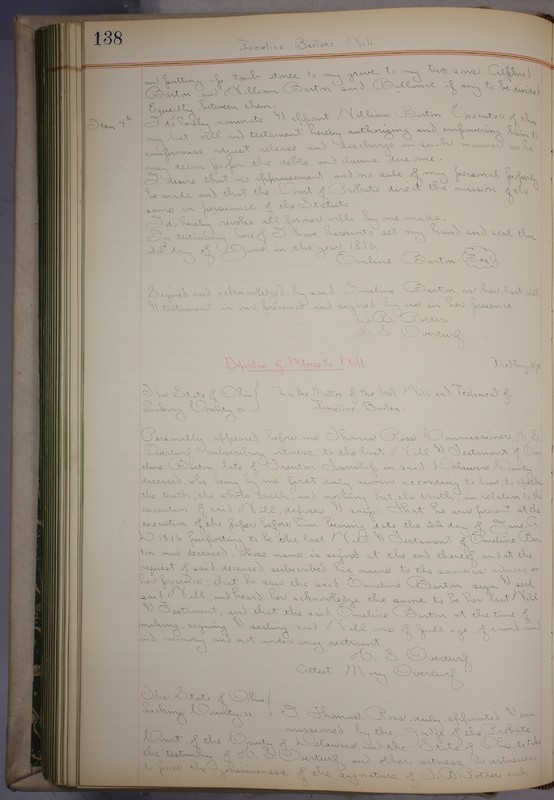 138
Emeline Barton Will
and putting up tomb stones to my grave to my two sons Alphred
Barton and William Barton said Ballance if any to be divided
Equerly between them.
Item 4th I do hereby nominate & appoint William Barton Executor of this
my last will and testament hereby authorizing and empowering him to
compromise adjust release and discharge in such manner as he
may deem proper the debts and claims due me.
I desire that no appraisement and no sale of my personal property
be made and that the Court of Probate direct the omission of the
same in pursuance of the Statute.
I do hereby revoke all former wills by me made.
In testimony hereof I have hereunto set my hand and seal this
day of June in the year 1876.
Emline Barton Seal
Signed and acknowledged by said Emeline Barton as her last will
& testament in our presence and signed by us in her presence.
J. B. Potter
H. S. Overturf
Deposition of Witness to Will
The State of Ohio } In the Matter of the last Will and Testament of
Licking County ss } Emeline Barton.
Personally appeared before me Thomas Ross Commissioner, H. S.
Overturf subscribing witness to the last Will & Testament of Em
eline Barton late of Trenton Township in said Delaware County
deceased, who being by me first duly sworn according to law, to speak
the truth, the whole truth, and nothing but the truth, in relation to the
execution of said Will, deposes & says: That he was present at the
execution of the paper before him bearing date the 22d day of June A.
D 1876 purporting to be the last Will & Testament of Emeline Bar
ton now deceased, whose name is signed at the end thereof, and at the
request of said deceased subscribed his name to the same as witness in
her presence; that he saw the said Emeline Barton sign & seal
said Will, and heard her acknowledge the same to be her last Will
& Testament, and that the said Emeline Barton at the time of
making, signing & sealing said Will, was of full age, of sound mind
and memory and not under any restraint.
H. S. Overturf
Attest Mary Overturf
The State of Ohio }
Licking County, ss } I, Thomas Ross, duly appointed & com
missioned by the Judge of the Probate
Court of the County of Delaware and the State of Ohio, to take
the testimony of H. S. Overturf and other witness or witnesses
to prove the genuineness of the signature of J. B. Potter sub